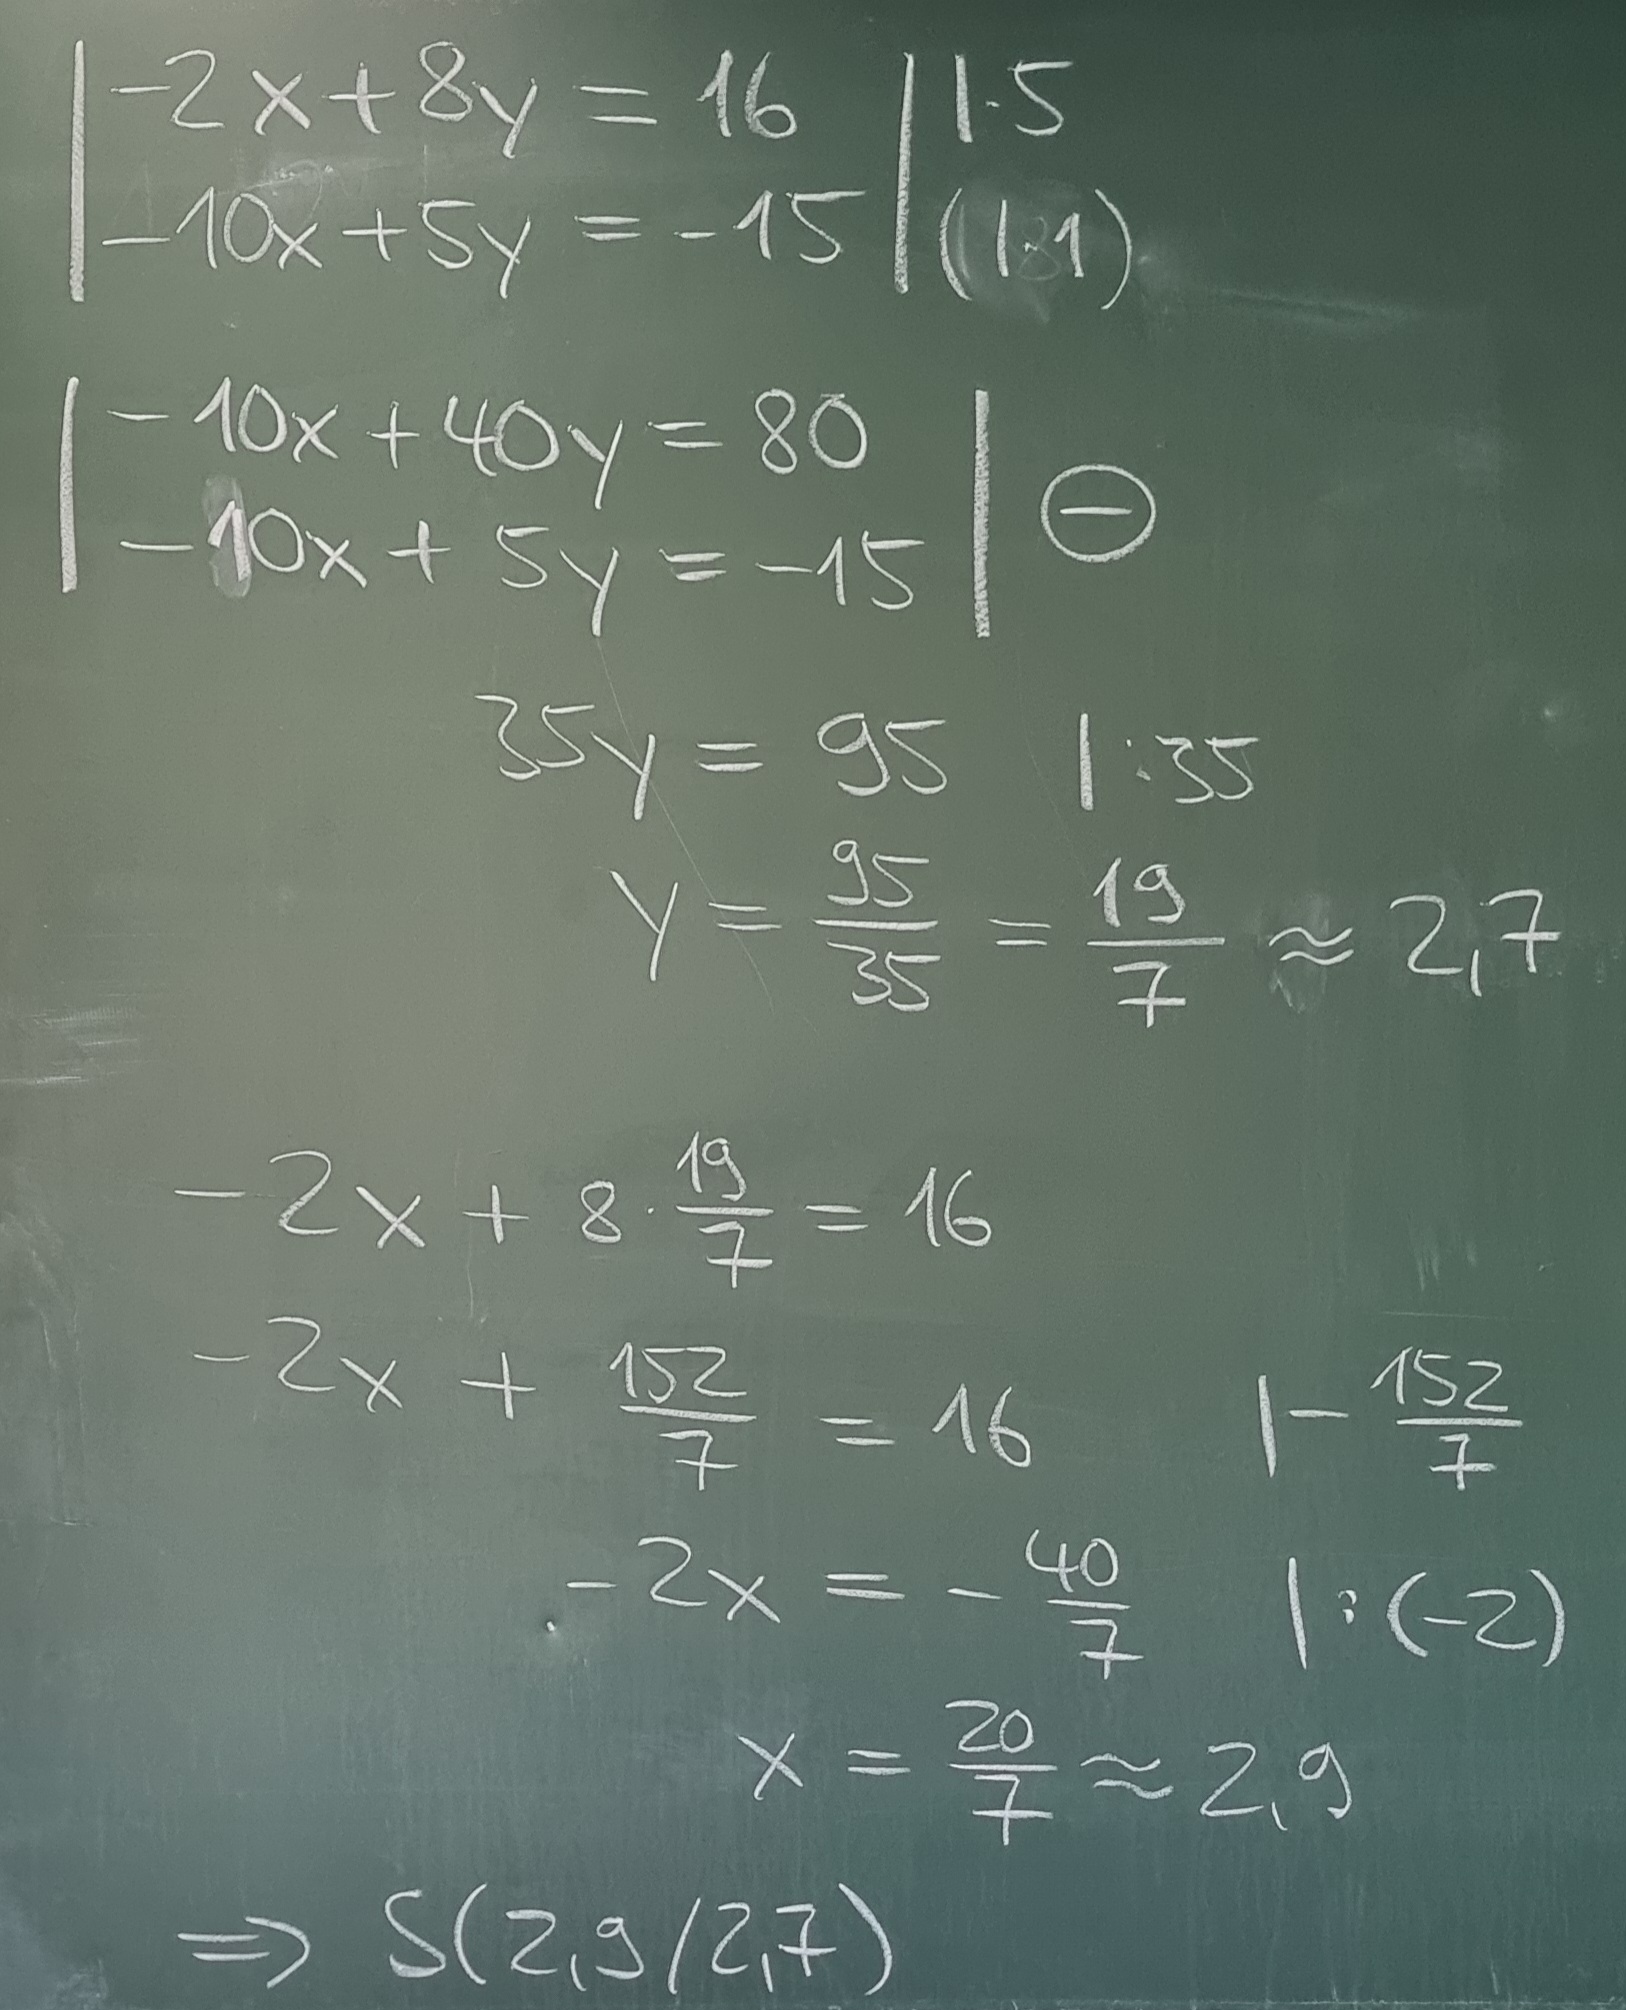 | -2x + 8y = 16 | |·5
| -10x + 5y = -15 | (|·1)
| -10x + 40y = 80 |
| -10x + 5y = -15 | ⊖
35y = 95 |:35
y = 95/35 = 19/7 ≈ 2,7
-2x + 8 · 19/7 = 16
-2x + 152/7 = 16 |- 152/7
-2x = - 40/7 |:(-2)
x = 20/7 ≈ 2,9
⇒ S(2,9/2,7)